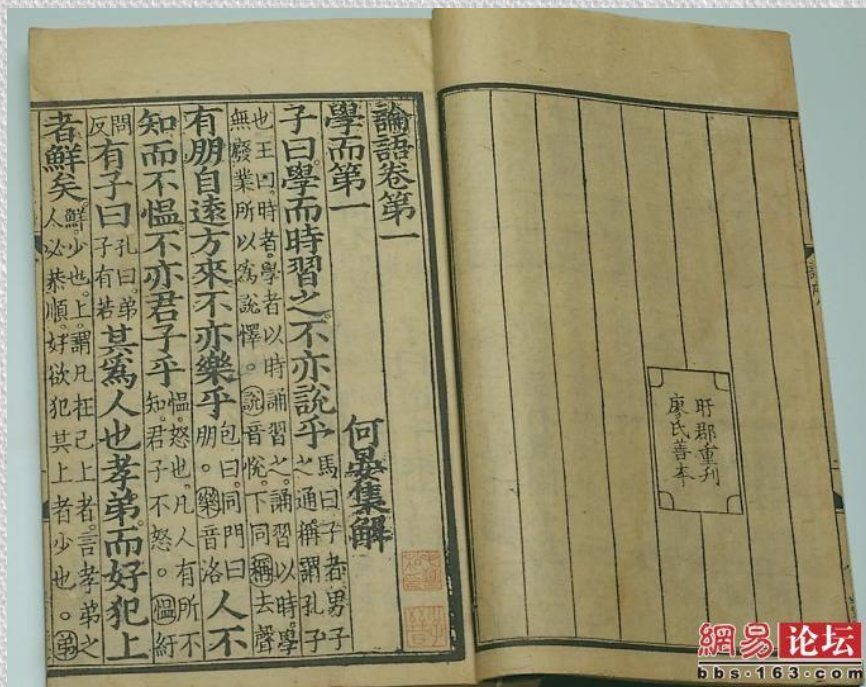 旴郡重刊
廖氏善本
論語卷第一
學而第一 何晏集解
子曰。學而時習之。不亦說乎 馬曰子者男子
之通稱謂孔子
也王曰。時者。學者以時誦習之。誦習以時。學
無廢業所以爲說懌。說音悅。下同稱去聲
有朋自遠方來不亦樂乎 包曰。同門曰
朋。樂音洛 人不
知而不慍。不亦君子乎 慍。怒也。凡人有所不
知。君子不怒。慍紆
問
反 有子曰 孔曰。弟
子有若 其爲人也孝弟。而好犯上
者鮮矣 鮮。少也。上。謂凡在己上者。言孝弟之
人必恭順。好欲犯其上者少也。弟
網易 论坛
bbs.163.com